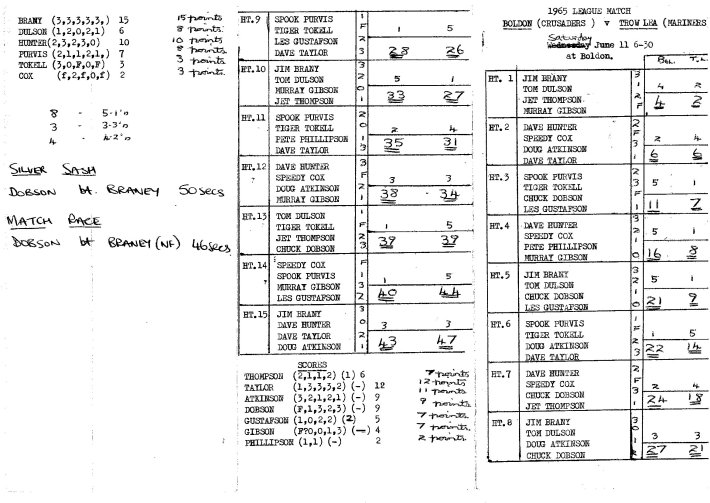 BRANY (3,3,3,3,3,) 15 15 points
DULSON (1,2,0,2,1) 6 8 points
HUNTER(2,3,2,3,0) 10 10 points
PURVIS (2,1,1,2,1,) 7 8 points
TOKELL (3,0,F,0,F) 3 3 points
COX (f,2,f,0,f) 2 3 points
8 - 5-1's
3 - 3-3's
4 - 4-2's
SILVER SASH
DOBSON bt. BRANEY 50 SECS
MATCH RACE
DOBSON bt BRANEY (NF) 46 SECS
HT.9 SPOOK PURVIS
TIGER TOKELL F 1 5
LES GUSTAFSON
DAVE TAYLOR 28 26
HT.10 JIM BRANY 3
TOM DULSON 5 1
MURRAY GIBSON 0
JET THOMPSON 33 27
HT.11 SPOOK PURVIS 2
TIGER TOKELL 0 2 4
PETE PHILLIPSON 1
DAVE TAYLOR 3 35 31
HT.12 DAVE HUNTER 3
SPEEDY COX F 3 3
DOUG ATKINSON 2
MURRAY GIBSON 1 38 34
HT.13 TOM DULSON 1
TIGER TOKELL F 1 5
JET THOMPSON 2
CHUCK DOBSON 3 39 39
HT.14 SPEEDY COX F
SPOOK PURVIS 1 1 5
MURRAY GIBSON 3
LES GUSTAFSON 2 40 44
HT.15 JIM BRANY 3
DAVE HUNTER 0 3 3
DAVE TAYLOR 2
DOUG ATKINSON 1 43 47
SCORES
THOMPSON (2,1,1,2) (1) 6 7 points
TAYLOR (1,3,3,3,2) (-) 12 12 points
ATKINSON (3,2,1,2,1) (-) 9 11 points
DOBSON (F,1,3,2,3) (-) 9 9 points
GUSTAFSON (1,0,2,2) (2) 5 7 points
GIBSON (F?0,0,1,3) (-) 4 7 points
PHILLIPSON (1,1) (-) 2 2 points
1965 LEAGUE MATCH
BOLDON (CRUSADERS) v TROW LEA (MARINERS
Saturday
Wednesday June 11 6-30
at Boldon.
HT. 1 JIM BRANY 3
TOM DULSON 1 4 2
JET THOMPSON 2
MURRAY GIBSON F 4 2
HT.2 DAVE HUNTER 2
SPEEDY COX F 2 4
DOUG ATKINSON 3
DAVE TAYLOR 1 6 6
HT.3 SPOOK PURVIS 2
TIGER TOKELL 3 5 1
CHUCK DOBSON F
LES GUSTAFSON 1 11 7
HT.4 DAVE HUNTER 3
SPEEDY COX 2 5 1
PETE PHILLIPSON 1
MURRAY GIBSON 0 16 8
HT.5 JIM BRANY 3
TOM DULSON 2 5 1
CHUCK DOBSON 1
LES GUSTAFSON 0 21 9
HT.6 SPOOK PURVIS 1
TIGER TOKELL F 1 5
DOUG ATKINSON 2
DAVE TAYLOR 3 22 14
HT.7 DAVE HUNTER 2
SPEEDY COX F 2 4
CHUCK DOBSON 3
JET THOMPSON 1 24 18
HT.8 JIM BRANY 3
TOM DULSON 0 3 3
DOUG ATKINSON 1
CHUCK DOBSON 2 27 21